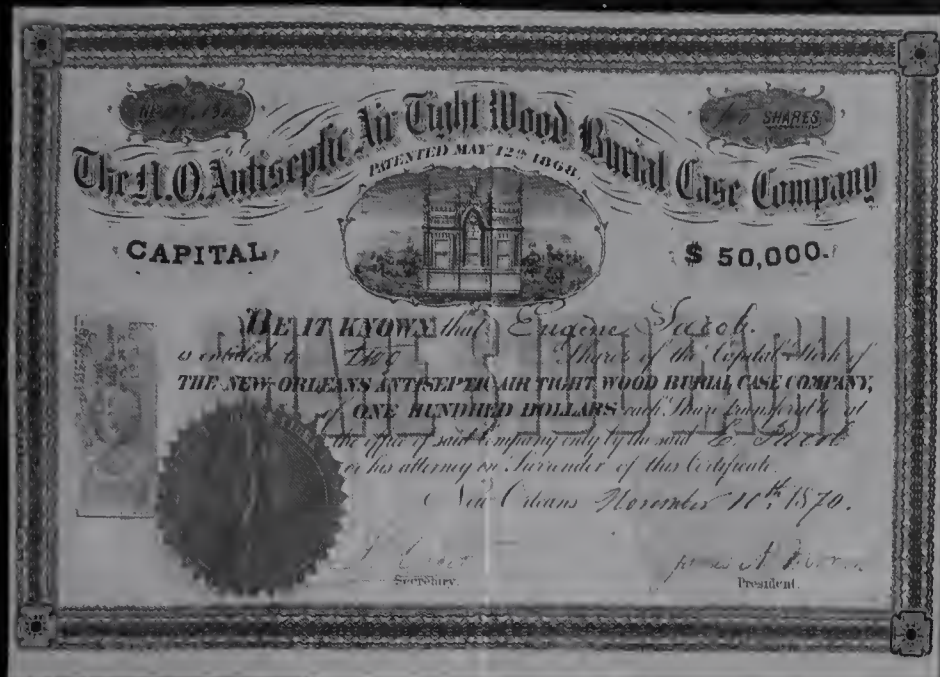 SHARES
The N.O. Antiseptic Air Tight Wood Burial Case Company
PATENTED MAY 12th 1868.
CAPITAL $ 50,000.
BE IT KNOWN that Eugene
is entitled to Two Shares of the Capital Stock of
THE NEW-ORLEANS ANTISEPTIC AIR TIGHT WOOD BURIAL CASE COMPANY,
of ONE HUNDRED DOLLARS each Share transferable at
the office of said Company only by the said E.
or his attorney on Surrender of this Certificate.
New Orleans November 10th 1870.
Secretary. President.